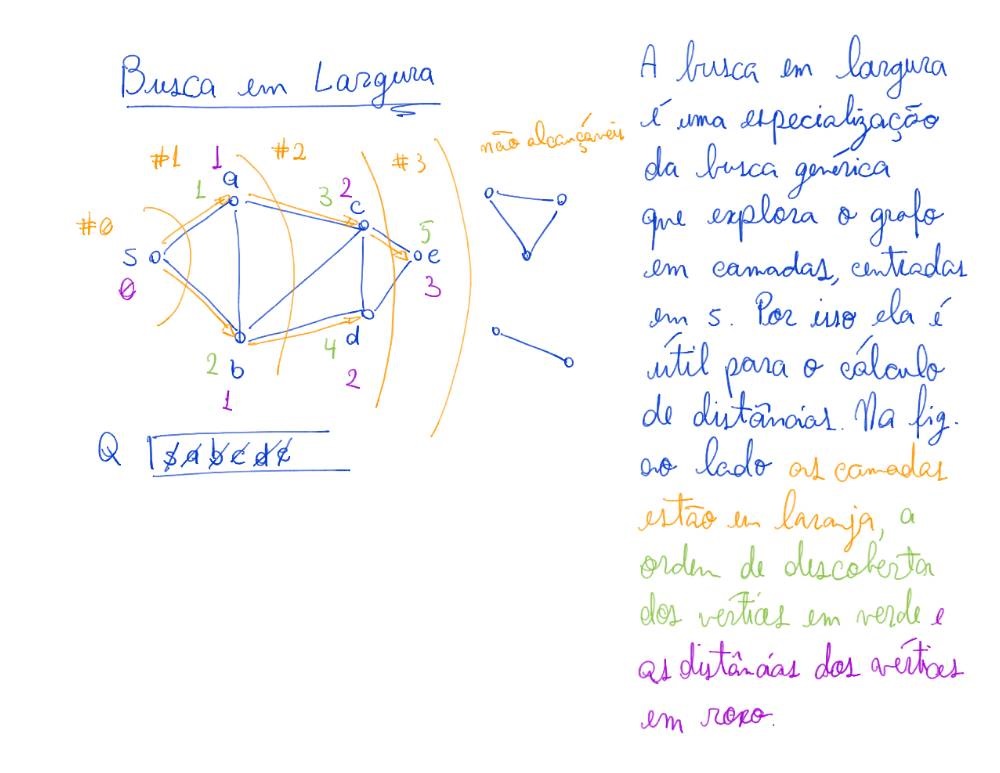 Busca em Largura
#1 1 #2 #3 não alcançáveis
1 a 3 2 c
#0 5
s e
0 3
2 b 4 d
1 2
Q s a b c d e
A busca em largura
é uma especialização
da busca genérica
que explora o grafo
em camadas, centradas
em s. Por isso ela é
útil para o cálculo
de distâncias. Na fig.
ao lado as camadas
estão em laranja, a
ordem de descoberta
dos vértices em verde e
as distâncias dos vértices
em roxo.